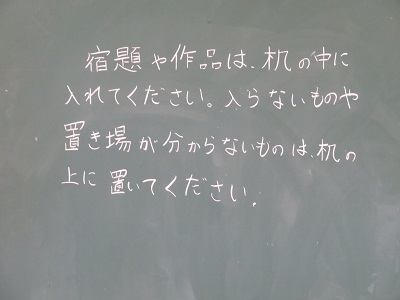 宿題や作品は、机の中に
入れてください。入らないものや
置き場が分からないものは、机の
上に置いてください。